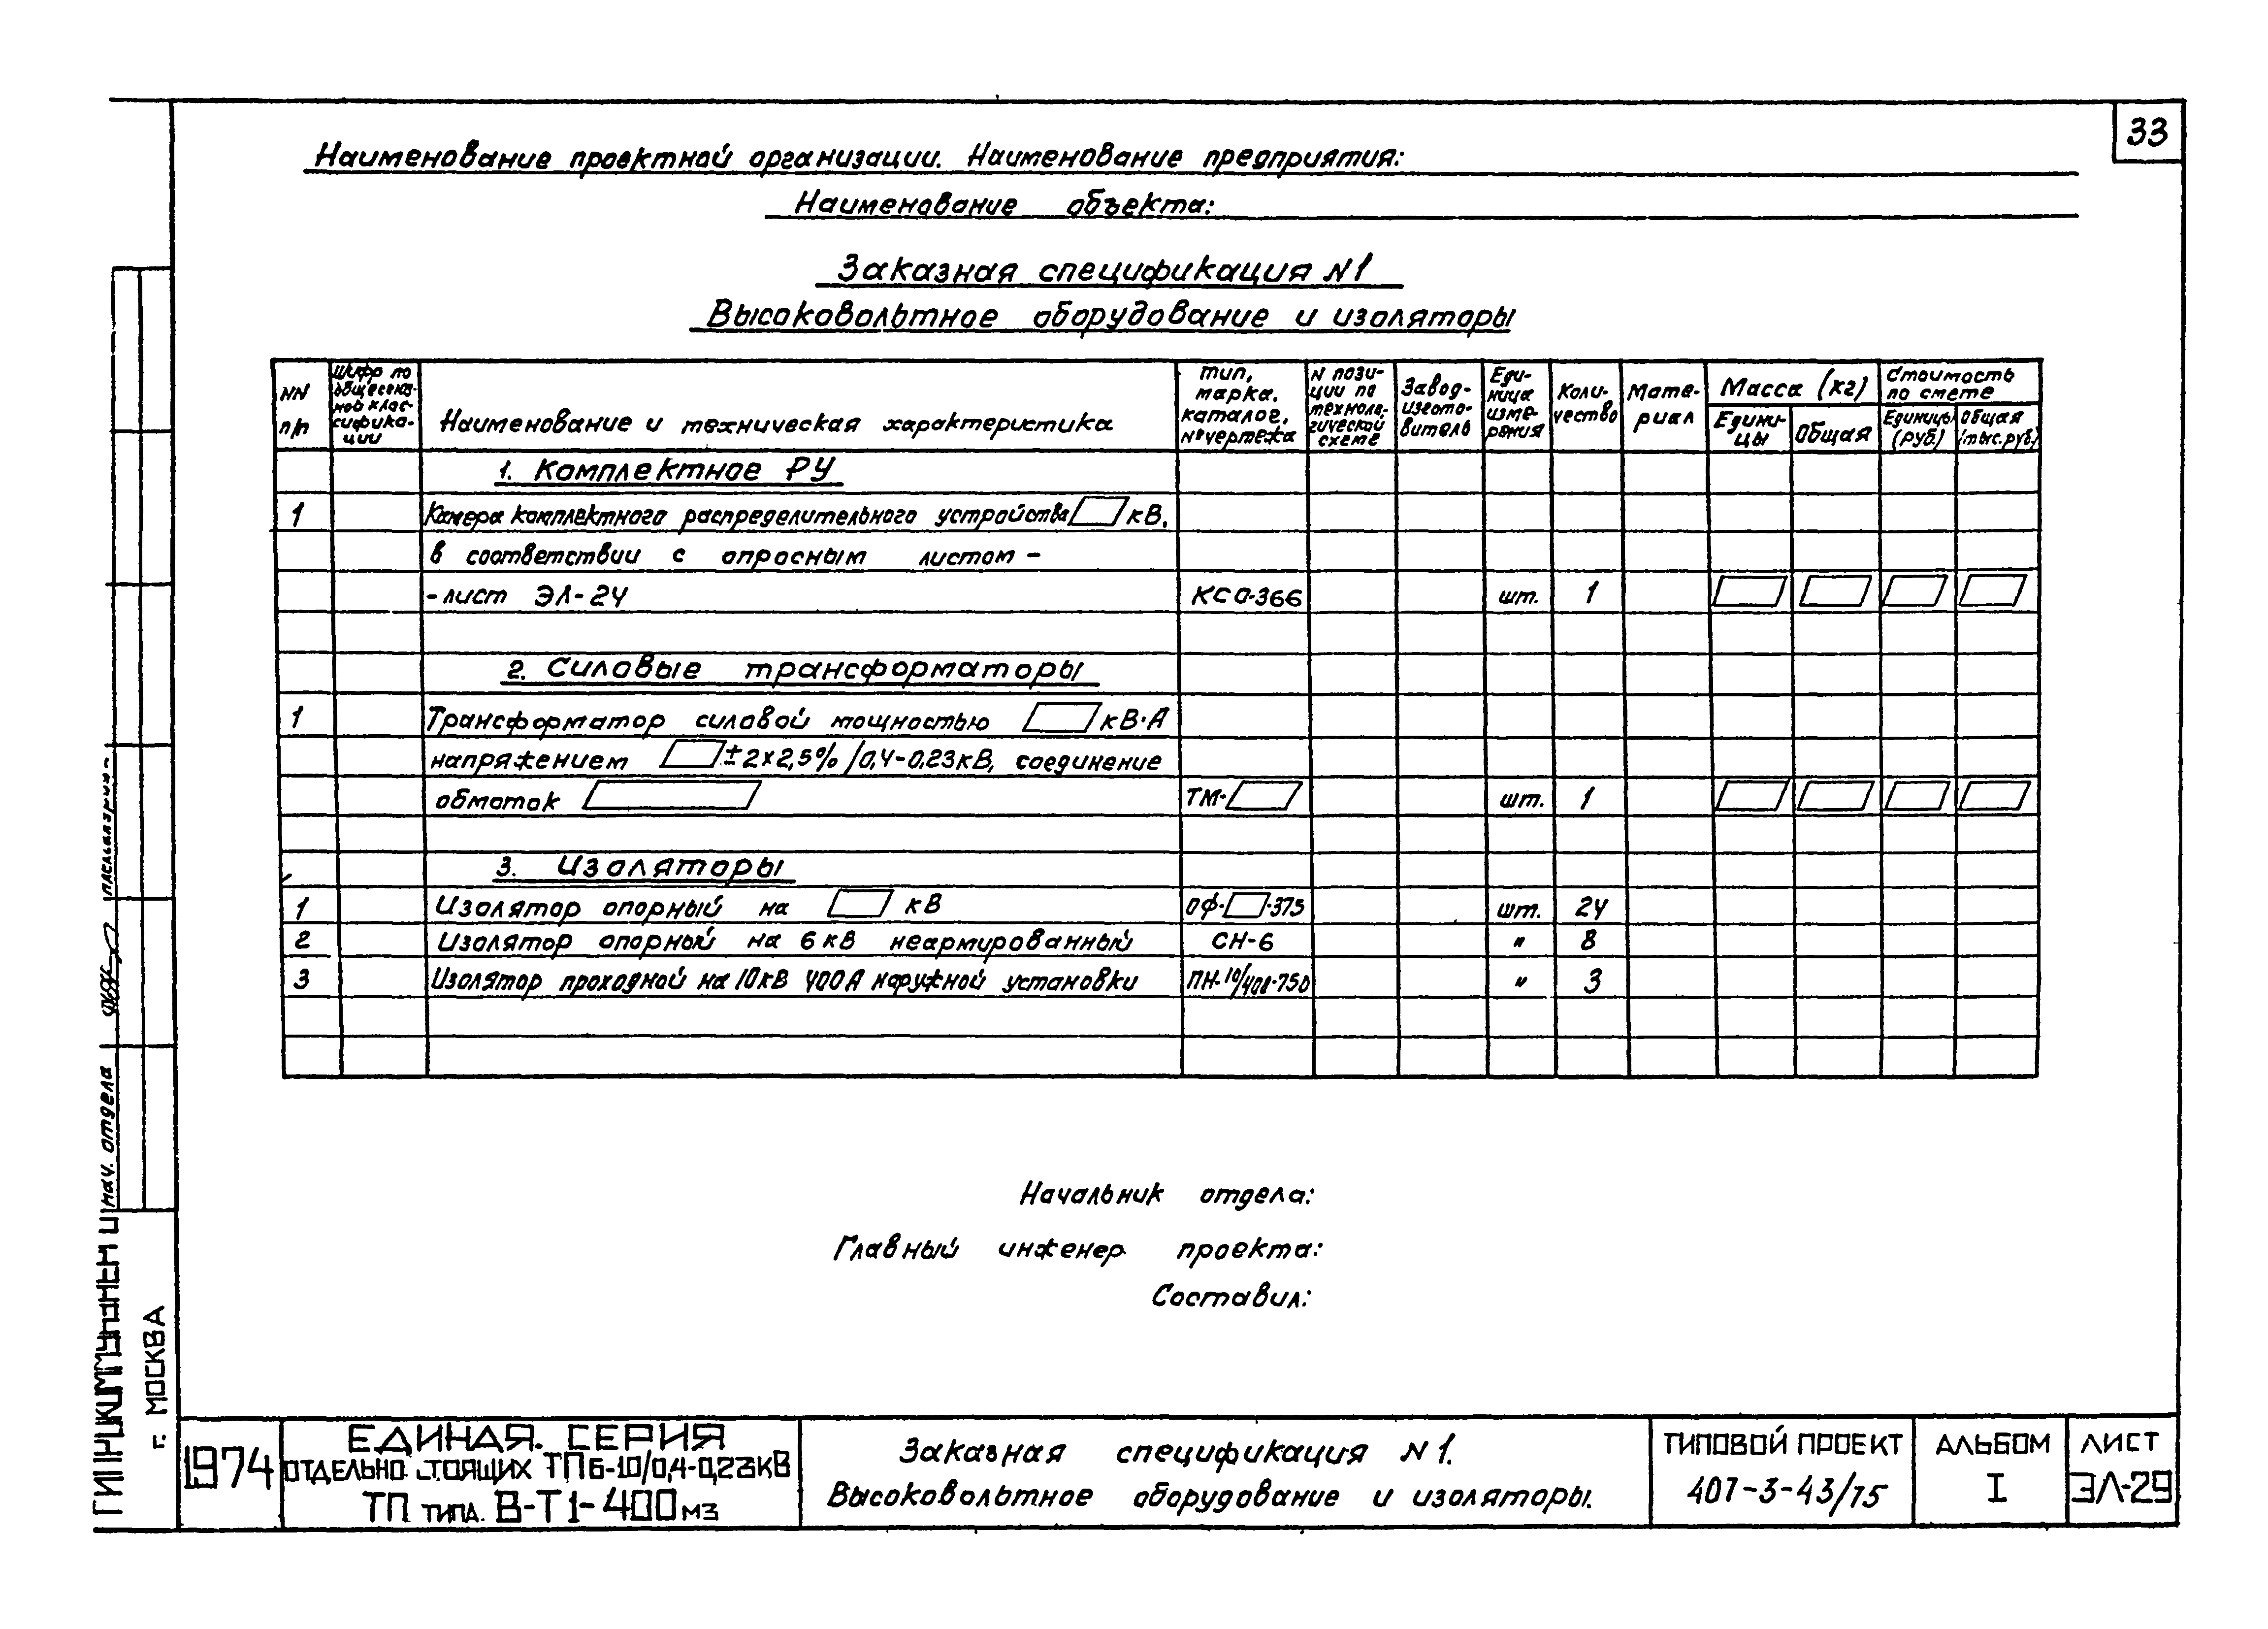 33
Наименование проектной организации. Наименование предприятия:
Наименование объекта:
Заказная спецификация N1
Высоковольтное оборудование и изоляторы
NN п/п
Шифр по общесоюзной классификации
Наименование и техническая характеристика
Тип, марка, каталог, № чертежа
N позиции по технологической схеме
Завод-изготовитель
Единица измерения
Количество
Материал
Масса (кг)
Единицы
Общая
Стоимость по смете
Единицы (руб.)
Общая (тыс.руб.)
1. Комплектное РУ
1 Камера комплектного распределительного устройства кВ,
в соответствии с опросным листом -
- лист ЭЛ-24 КСО-366 шт. 1
2. Силовые трансформаторы
1 Трансформатор силовой мощностью кВ·А
напряжением ±2×2,5% /0,4-0,23кВ, соединение
обмоток ТМ- шт. 1
3. Изоляторы
1 Изолятор опорный на кВ ОФ- -375 шт. 24
2 Изолятор опорный на 6 кВ неармированный СН-6 " 8
3 Изолятор проходной на 10кВ 400А наружной установки ПН-10/400-750 " 3
Начальник отдела:
Главный инженер проекта:
Составил:
нач. отдела
г. МОСКВА
1974
ЕДИНАЯ СЕРИЯ
ОТДЕЛЬНО СТОЯЩИХ ТП 6-10/0,4-0,23КВ
ТП ТИПА В-Т1-400 МЗ
Заказная спецификация N1.
Высоковольтное оборудование и изоляторы.
ТИПОВОЙ ПРОЕКТ
407-3-43/75
АЛЬБОМ
I
ЛИСТ
ЭЛ-29